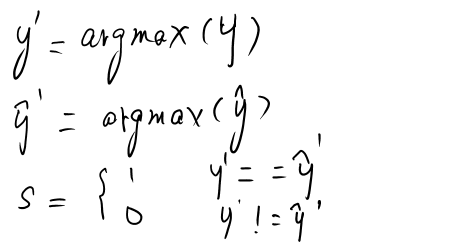 y' = argmax(y)
ŷ' = argmax(ŷ)
s = { 1 y' == ŷ'
0 y' != ŷ'